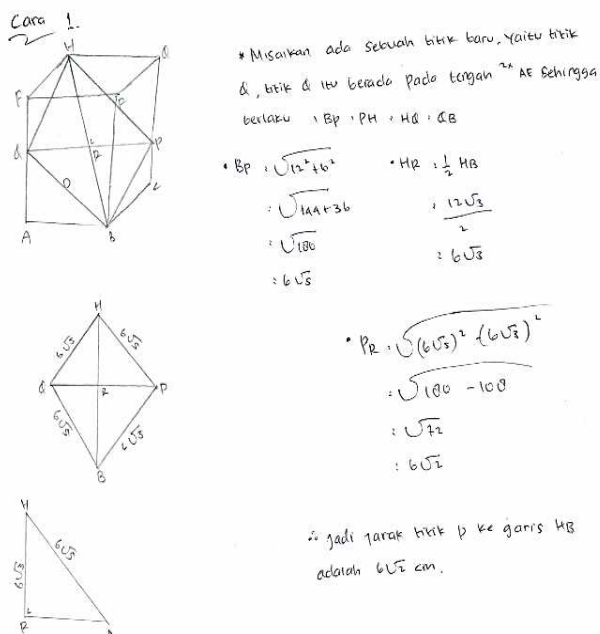 Cara 1.
* Misalkan ada sebuah titik baru, yaitu titik
Q, titik Q itu berada pada tengah 2x AE sehingga
berlaku : BP : PH : HQ : QB
• BP : √12² + 6²
: √144 + 36
: √180
: 6√5
• HR : ½ HB
: 12√3 / 2
: 6√3
H
E
F
Q
R
P
A
B
H
6√5
6√5
Q
R
P
6√5
6√5
B
• PR : √(6√5)² - (6√3)²
: √180 - 108
: √72
: 6√2
H
6√3
6√5
R
∴ Jadi jarak titik P ke garis HB
adalah 6√2 cm.